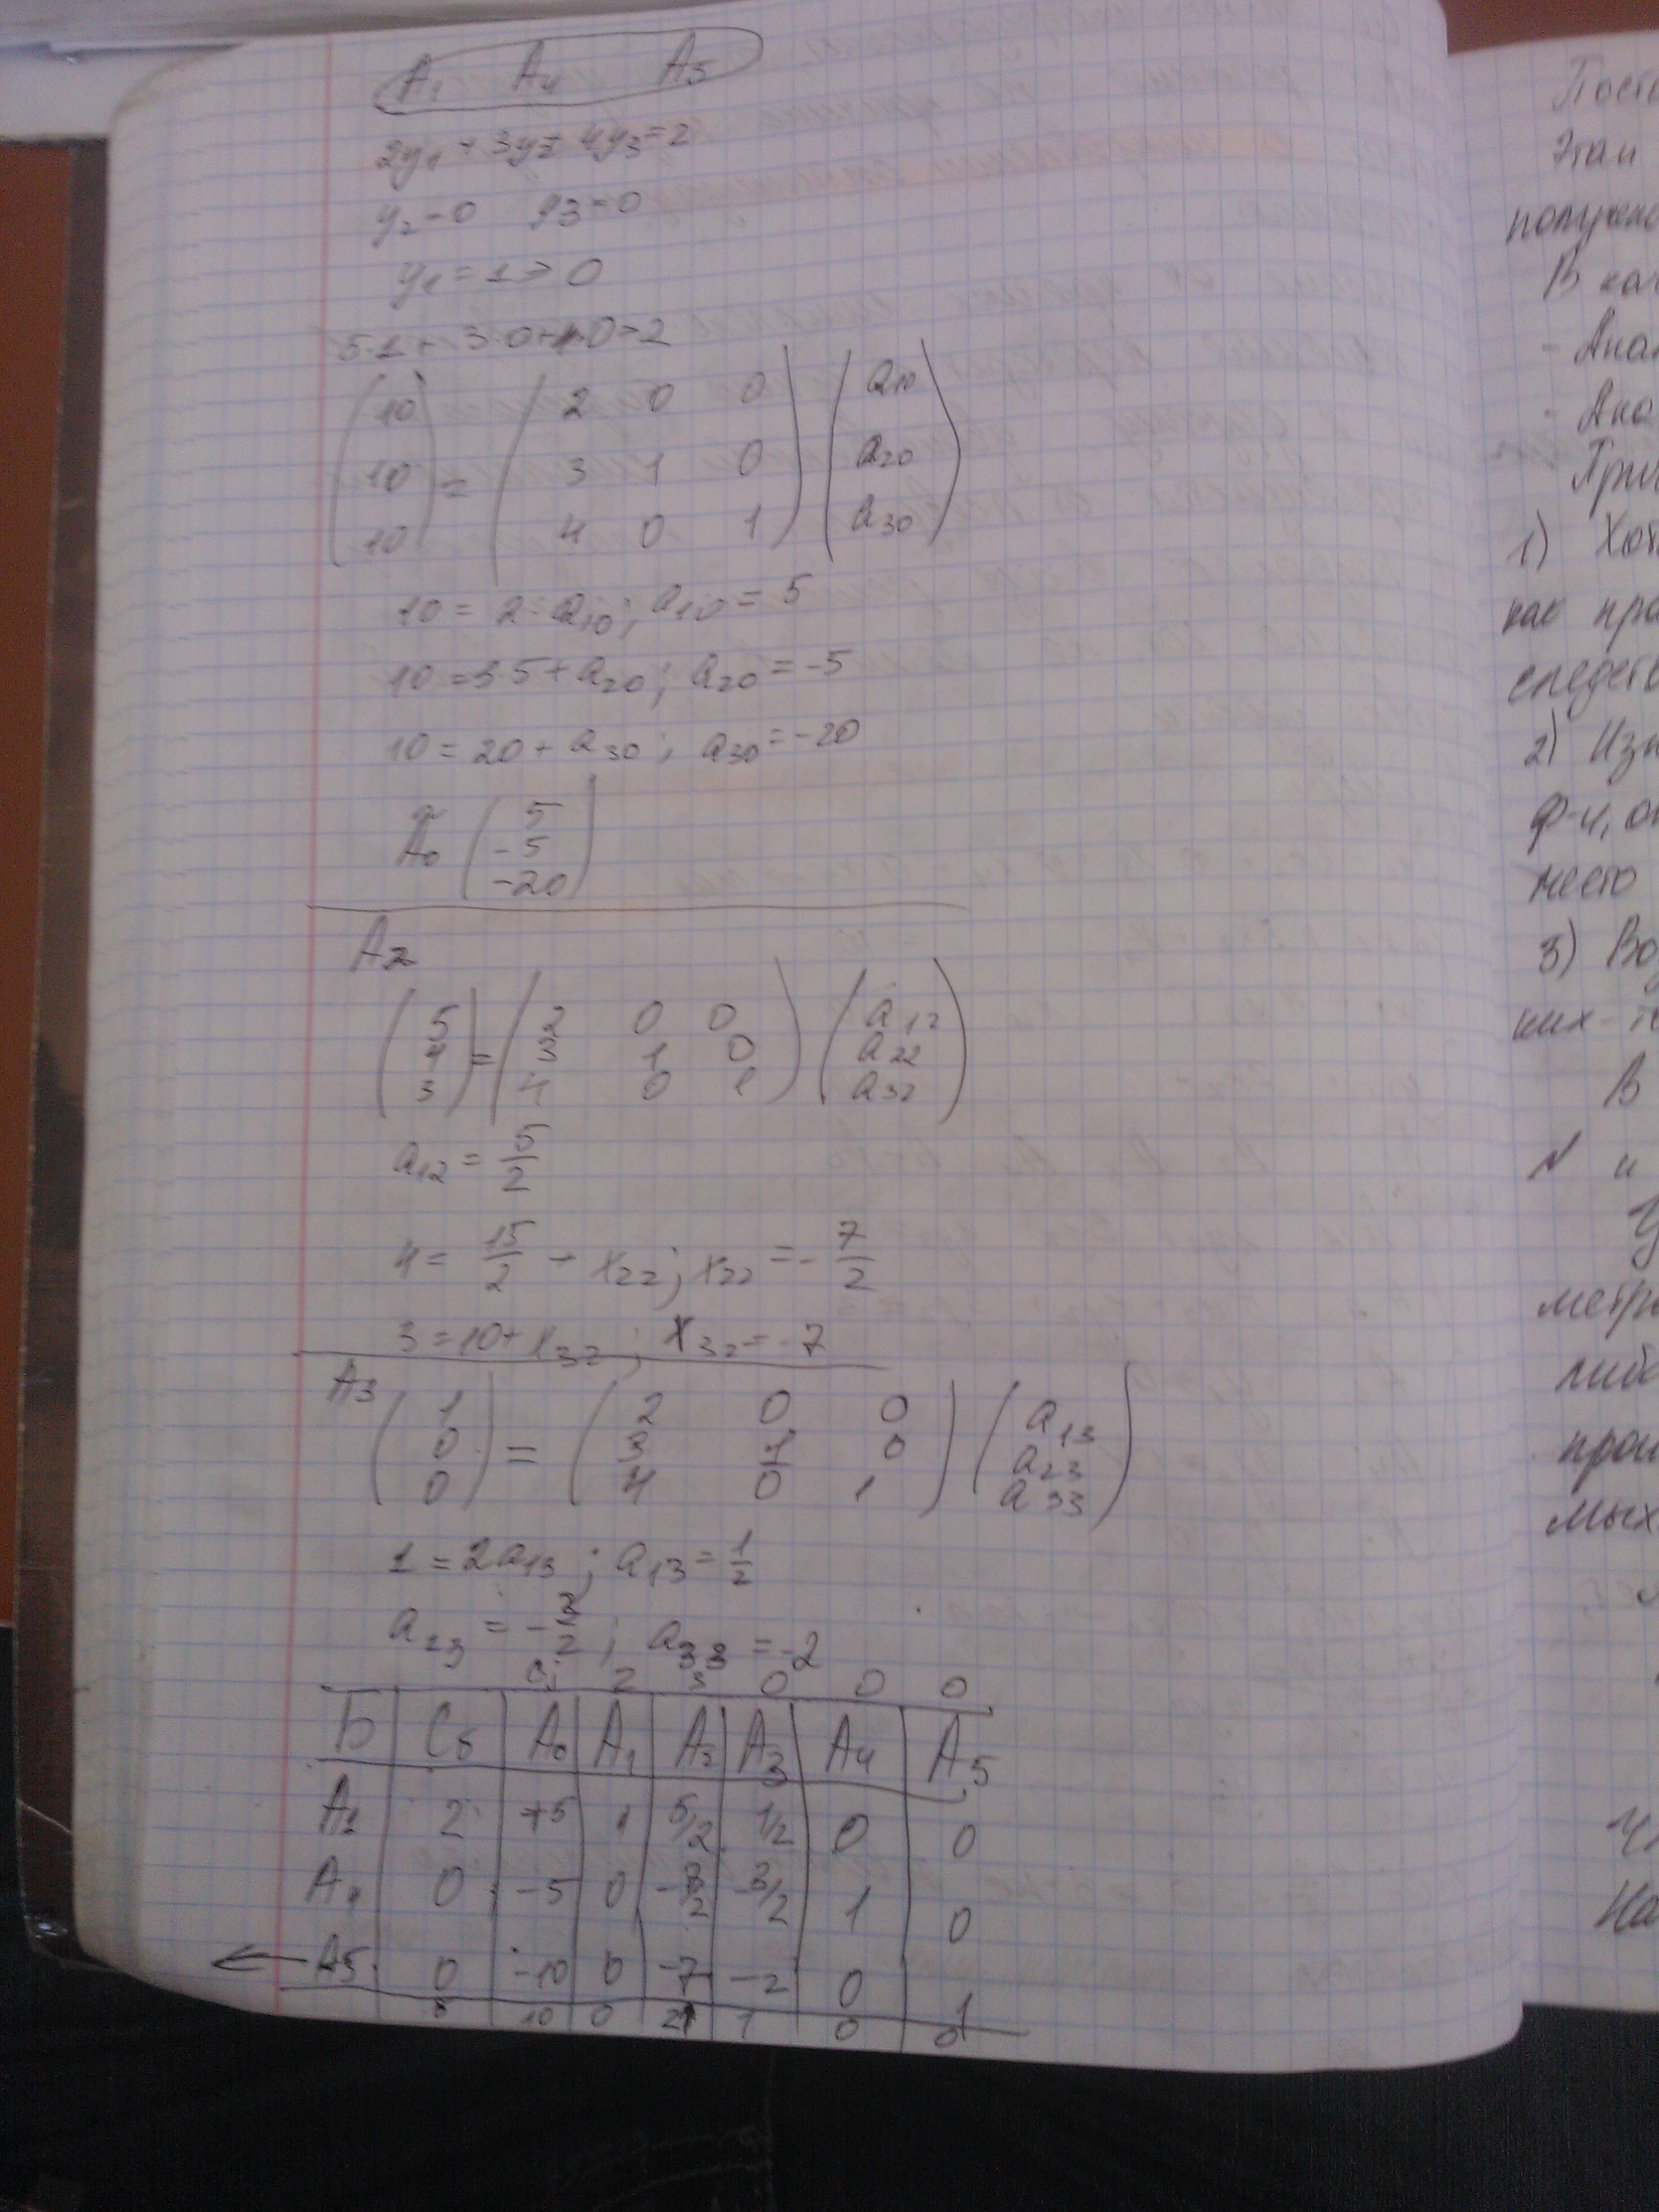 A₁ A₄ A₅
2y₁ + 3y₂ + 4y₃ = 2
y₂ = 0 y₃ = 0
y₁ = 1 > 0
5·1 + 3·0 + 4·0 > 2
(10) = (2 0 0) (a₁₀)
(10) (3 1 0) (a₂₀)
(10) (4 0 1) (a₃₀)
10 = 2·a₁₀; a₁₀ = 5
10 = 3·5 + a₂₀; a₂₀ = -5
10 = 20 + a₃₀; a₃₀ = -20
Ã₀ (5)
(-5)
(-20)
A₂
(5) = (2 0 0) (a₁₂)
(4) (3 1 0) (a₂₂)
(3) (4 0 1) (a₃₂)
a₁₂ = 5/2
4 = 15/2 + x₂₂; x₂₂ = -7/2
3 = 10 + x₃₂; x₃₂ = -7
A₃ (1) = (2 0 0) (a₁₃)
(0) (3 1 0) (a₂₃)
(0) (4 0 1) (a₃₃)
1 = 2a₁₃; a₁₃ = 1/2
a₂₃ = -3/2; a₃₃ = -2
Cj 2 3 0 0 0
Б Cб A₀ A₁ A₂ A₃ A₄ A₅
A₁ 2 +5 1 5/2 1/2 0 0
A₄ 0 -5 0 -3/2 1 0
← A₅ 0 -10 0 -7 -2 0 1
10 0 2 1 0 0
Этап
получен
В кач
1) Хот
как пра
следств
2) Изм
ф-и, оп
место
3) Воз
ких-т
В
N и
У
метр
либо
прои
мых
На